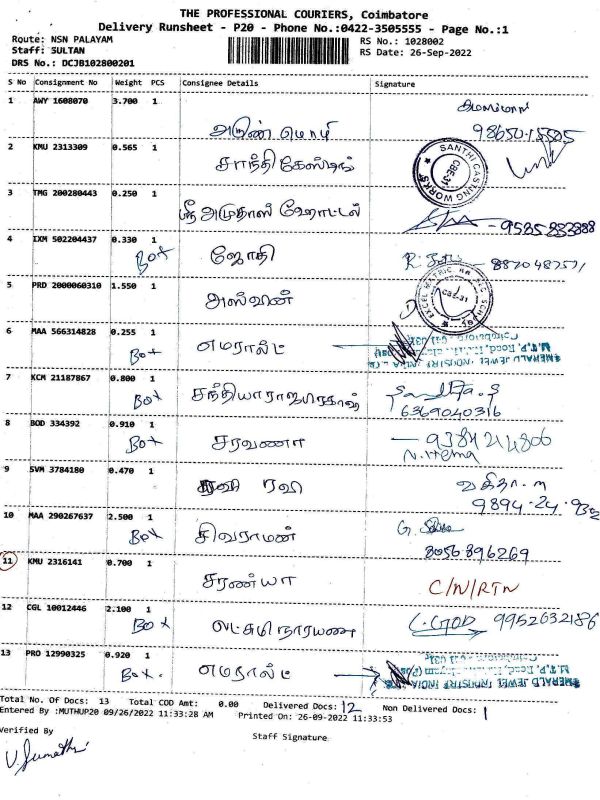 THE PROFESSIONAL COURIERS, Coimbatore
Delivery Runsheet - P20 - Phone No.:0422-3505555 - Page No.:1
Route: NSN PALAYAM
Staff: SULTAN
DRS No.: DCJB102800201
RS No.: 1028002
RS Date: 26-Sep-2022
S No Consignment No Weight PCS Consignee Details Signature
1 AWY 1608070 3.700 1
அருண் மொழி 98650-15505
2 KMU 2313309 0.565 1
சாந்தி கேஸ்டிங் SANTHI CASTING WORKS CBE-31
3 TMG 200280443 0.250 1
ஸ்ரீ அமுதாஸ் ஹோட்டல் - 9585883888
4 IXM 502204437 0.330 1
Box ஜோதி
5 PRD 2000060310 1.550 1
அஸ்வின் CBE-31
6 MAA 566314828 0.255 1
Box எமரால்ட் EMERALD JEWEL INDUSTRY INDIA
7 KCM 21187867 0.800 1
Box சந்தியாராஜபிரகாஷ் 6369040316
8 BOD 334392 0.910 1
Box சரவணா - 9384214806
N. Hema
9 SVM 3784180 0.470 1
ரவி
10 MAA 290267637 2.500 1
Box சிவராமன் 8056896269
11 KMU 2316141 0.700 1
சரண்யா C/N/RTN
12 CGL 10012446 2.100 1
Box லட்சுமி நாராயண 9952632186
13 PRO 12990325 0.920 1
Box. எமரால்ட் EMERALD JEWEL INDUSTRY INDIA
Total No. Of Docs: 13 Total COD Amt: 0.00 Delivered Docs: 12 Non Delivered Docs: 1
Entered By :MUTHUP20 09/26/2022 11:33:28 AM Printed On: 26-09-2022 11:33:53
Verified By
Staff Signature
V. Sumathi